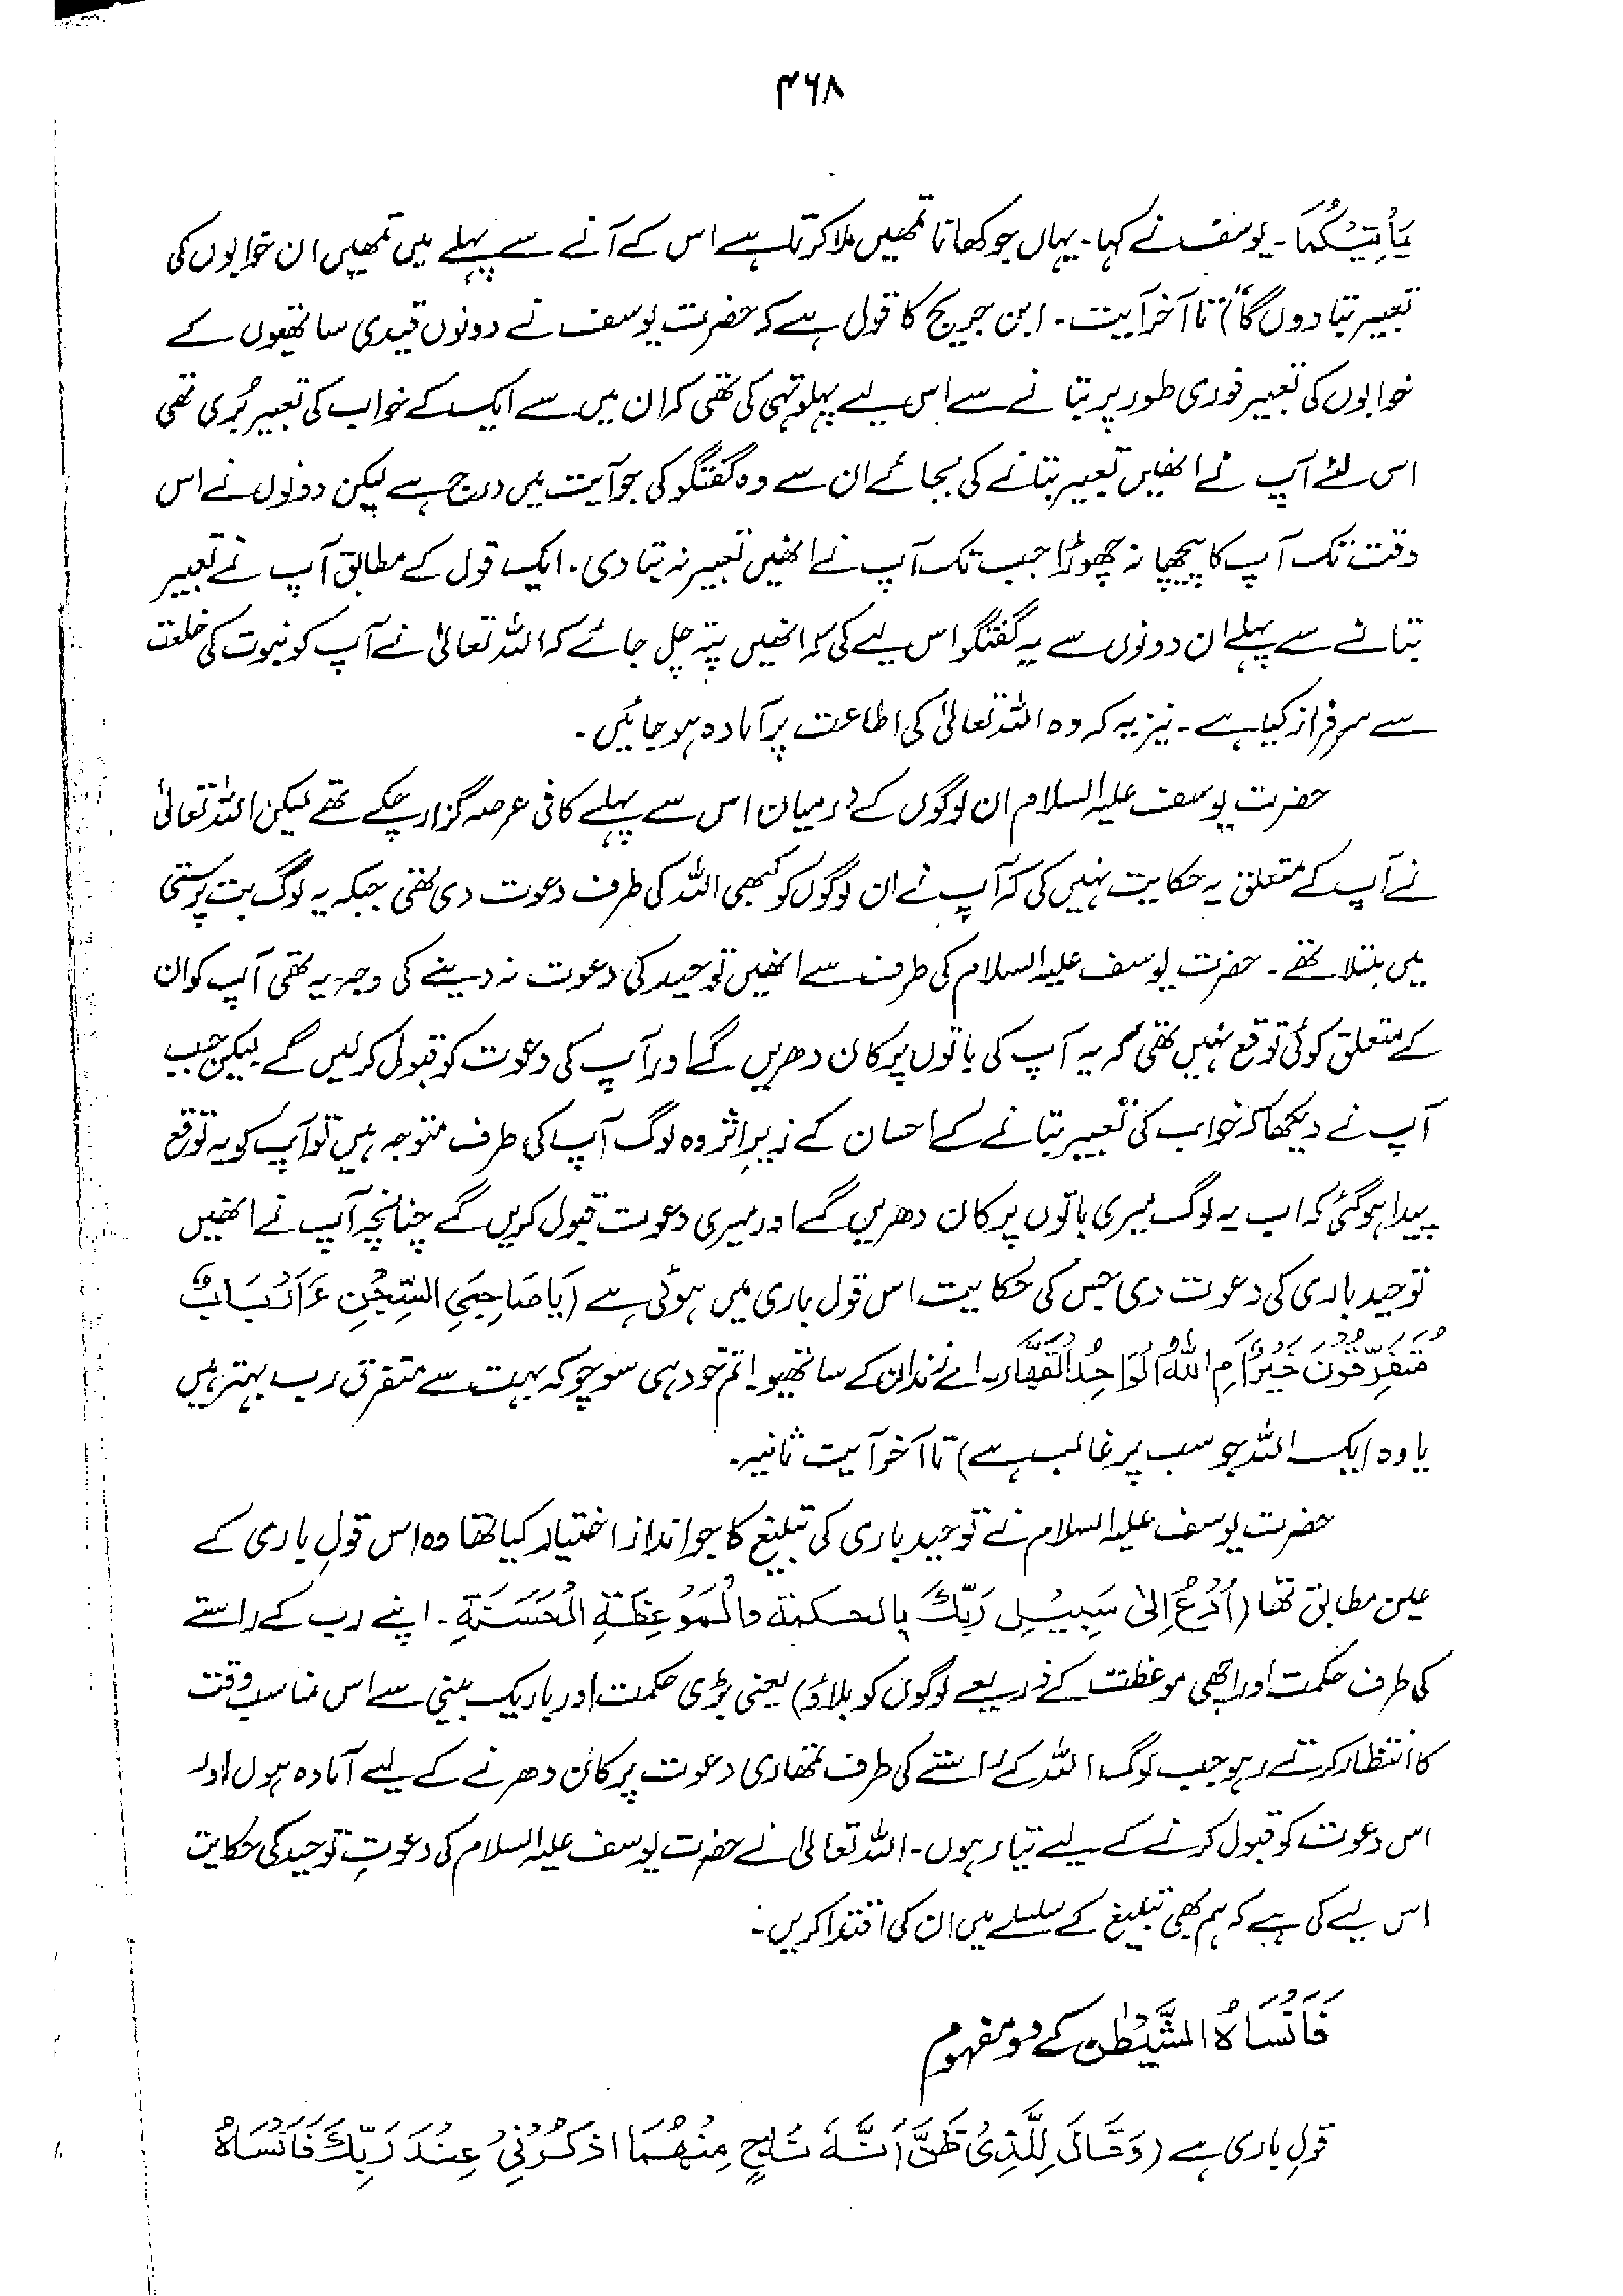 ۴۶۸
یَأْتِیَکُمَا۔ یوسف نے کہا۔ یہاں جو کھانا تمھیں ملا کرتا ہے اس کے آنے سے پہلے میں تمھیں ان خوابوں کی
تعبیر بتا دوں گا) تا آخر آیت۔ ابن جریج کا قول ہے کہ حضرت یوسف نے دونوں قیدی ساتھیوں کے
خوابوں کی تعبیر فوری طور پر بتانے سے اس لیے پہلو تہی کی تھی کہ ان میں سے ایک کے خواب کی تعبیر بُری تھی
اس لئے آپ نے انھیں تعبیر بتانے کی بجائے ان سے وہ گفتگو کی جو آیت میں درج ہے لیکن دونوں نے اس
وقت تک آپ کا پیچھا نہ چھوڑا جب تک آپ نے انھیں تعبیر نہ بتا دی۔ ایک قول کے مطابق آپ نے تعبیر
بتانے سے پہلے ان دونوں سے یہ گفتگو اس لیے کی کہ انھیں پتہ چل جائے کہ اللہ تعالیٰ نے آپ کو نبوت کی خلعت
سے سرفراز کیا ہے۔ نیز یہ کہ وہ اللہ تعالیٰ کی اطاعت پر آمادہ ہو جائیں۔
حضرت یوسف علیہ السلام ان لوگوں کے درمیان اس سے پہلے کافی عرصہ گزار چکے تھے لیکن اللہ تعالیٰ
نے آپ کے متعلق یہ حکایت نہیں کی کہ آپ نے ان لوگوں کو کبھی اللہ کی طرف دعوت دی تھی جبکہ یہ لوگ بت پرستی
میں مبتلا تھے۔ حضرت یوسف علیہ السلام کی طرف سے انھیں توحید کی دعوت نہ دینے کی وجہ یہ تھی آپ کو ان
کے متعلق کوئی توقع نہیں تھی کہ یہ آپ کی باتوں پر کان دھریں گے اور آپ کی دعوت کو قبول کر لیں گے لیکن جب
آپ نے دیکھا کہ خواب کی تعبیر بتانے کے احسان کے زیرِ اثر وہ لوگ آپ کی طرف متوجہ ہیں تو آپ کو یہ توقع
پیدا ہو گئی کہ اب یہ لوگ میری باتوں پر کان دھریں گے اور میری دعوت قبول کریں گے چنانچہ آپ نے انھیں
توحید باری کی دعوت دی جس کی حکایت اس قول باری میں ہوئی ہے (یَا صَاحِبَیِ السِّجْنِ ءَاَرْبَابٌ
مُّتَفَرِّقُوْنَ خَیْرٌ اَمِ اللّٰهُ الْوَاحِدُ الْقَهَّارُ۔ اے زندان کے ساتھیو! تم خود ہی سوچو کہ بہت سے متفرق رب بہتر ہیں
یا وہ ایک اللہ جو سب پر غالب ہے) تا آخر آیت ثانیہ۔
حضرت یوسف علیہ السلام نے توحید باری کی تبلیغ کا جو انداز اختیار کیا تھا وہ اس قولِ باری کے
عین مطابق تھا (اُدْعُ اِلیٰ سَبِیْلِ رَبِّكَ بالحکمة والْمَوْعِظَةِ الْحَسَنَةِ۔ اپنے رب کے راستے
کی طرف حکمت اور اچھی موعظت کے ذریعے لوگوں کو بلاؤ) یعنی بڑی حکمت اور باریک بینی سے اس مناسب وقت
کا انتظار کرتے رہو جب لوگ اللہ کے راستے کی طرف تمھاری دعوت پر کان دھرنے کے لیے آمادہ ہوں اور
اس دعوت کو قبول کرنے کے لیے تیار ہوں۔ اللہ تعالیٰ نے حضرت یوسف علیہ السلام کی دعوتِ توحید کی حکایت
اس لیے کی ہے کہ ہم بھی تبلیغ کے سلسلے میں ان کی اقتدا کریں۔
فَاَنْسَاهُ الشَّیْطٰن کے دو مفہوم
قولِ باری ہے (وَقَالَ لِلَّذِیْ ظَنَّ اَنَّهٗ نَاجٍ مِنْهُمَا اذْکُرْنِیْ عِنْدَ رَبِّكَ فَاَنْسَاهُ